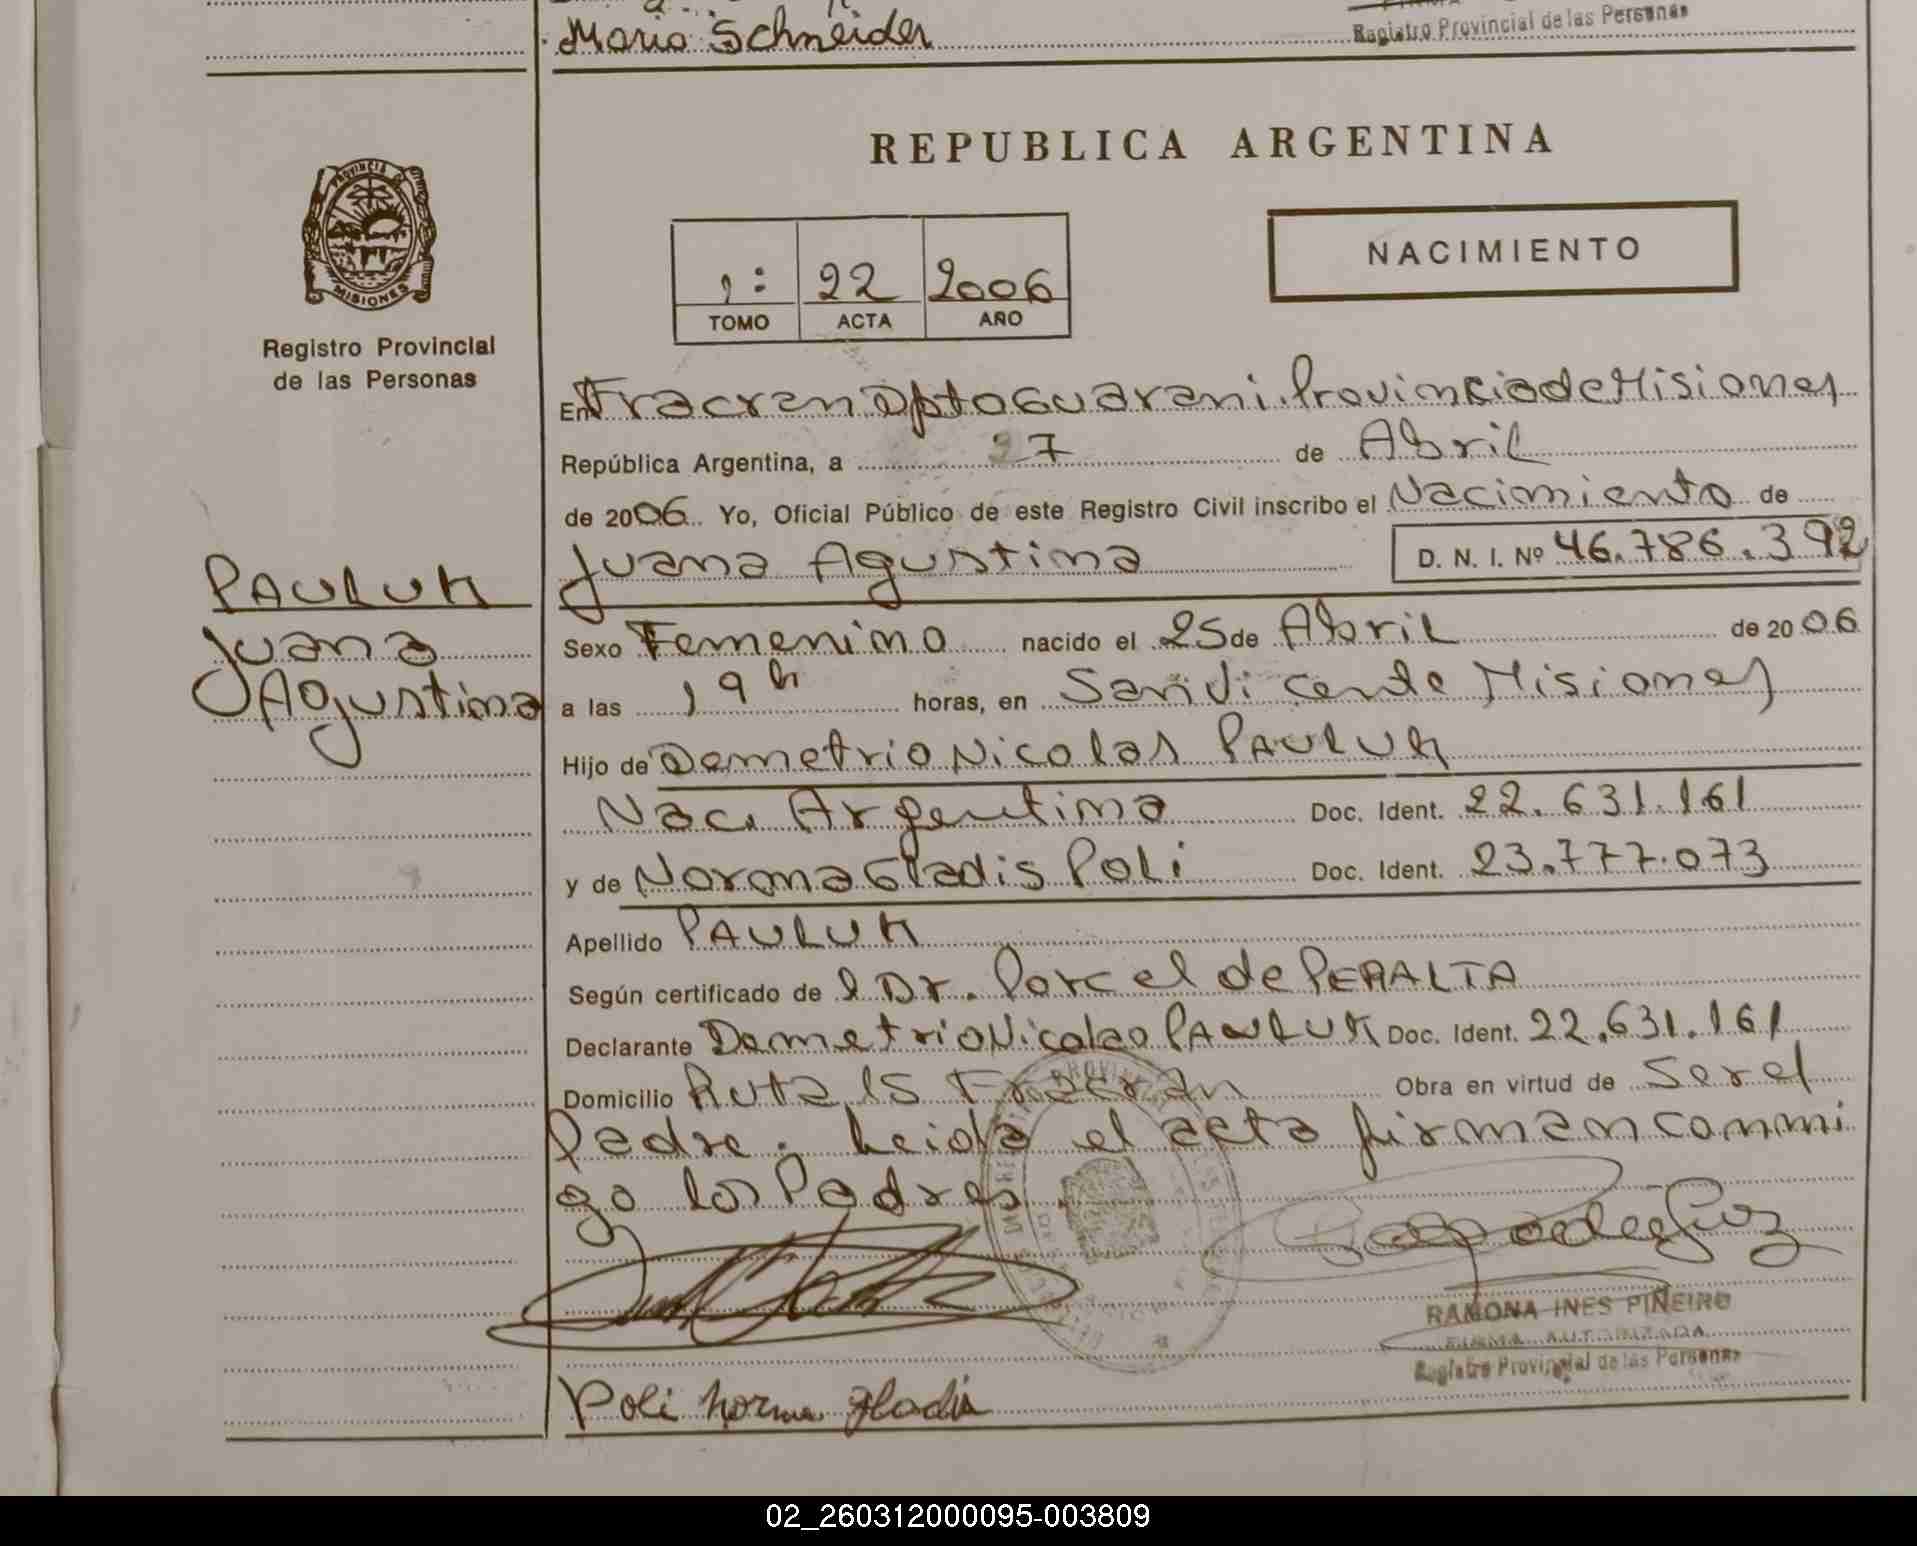 Mario Schneider
Registro Provincial de las Personas
REPUBLICA ARGENTINA
PROVINCIA DE
MISIONES
NACIMIENTO
1: 22 2006
TOMO ACTA AÑO
Registro Provincial
de las Personas
En Fracran Dpto Guarani. Provincia de Misiones
República Argentina, a 27 de Abril
de 2006 Yo, Oficial Público de este Registro Civil inscribo el Nacimiento de
Juana Agustina D. N. I. Nº 46.786.392
PAULUK
Juana
Agustina
Sexo Femenino nacido el 25 de Abril de 2006
a las 19 h horas, en San Vicente Misiones
Hijo de Demetrio Nicolas PAULUK
Nac. Argentina Doc. Ident. 22.631.161
y de Norma Gladis Poli Doc. Ident. 23.777.073
Apellido PAULUK
Según certificado de l Dr. Porcel de PERALTA
Declarante Demetrio Nicolas PAULUK Doc. Ident. 22.631.161
Domicilio Ruta 15 Fracran Obra en virtud de Ser el
Padre. Leida el acta firman conmi
go los Padres.
RAMONA INES PIÑEIRO
FIRMA AUTORIZADA
Registro Provincial de las Personas
Poli Norma gladis
02_260312000095-003809